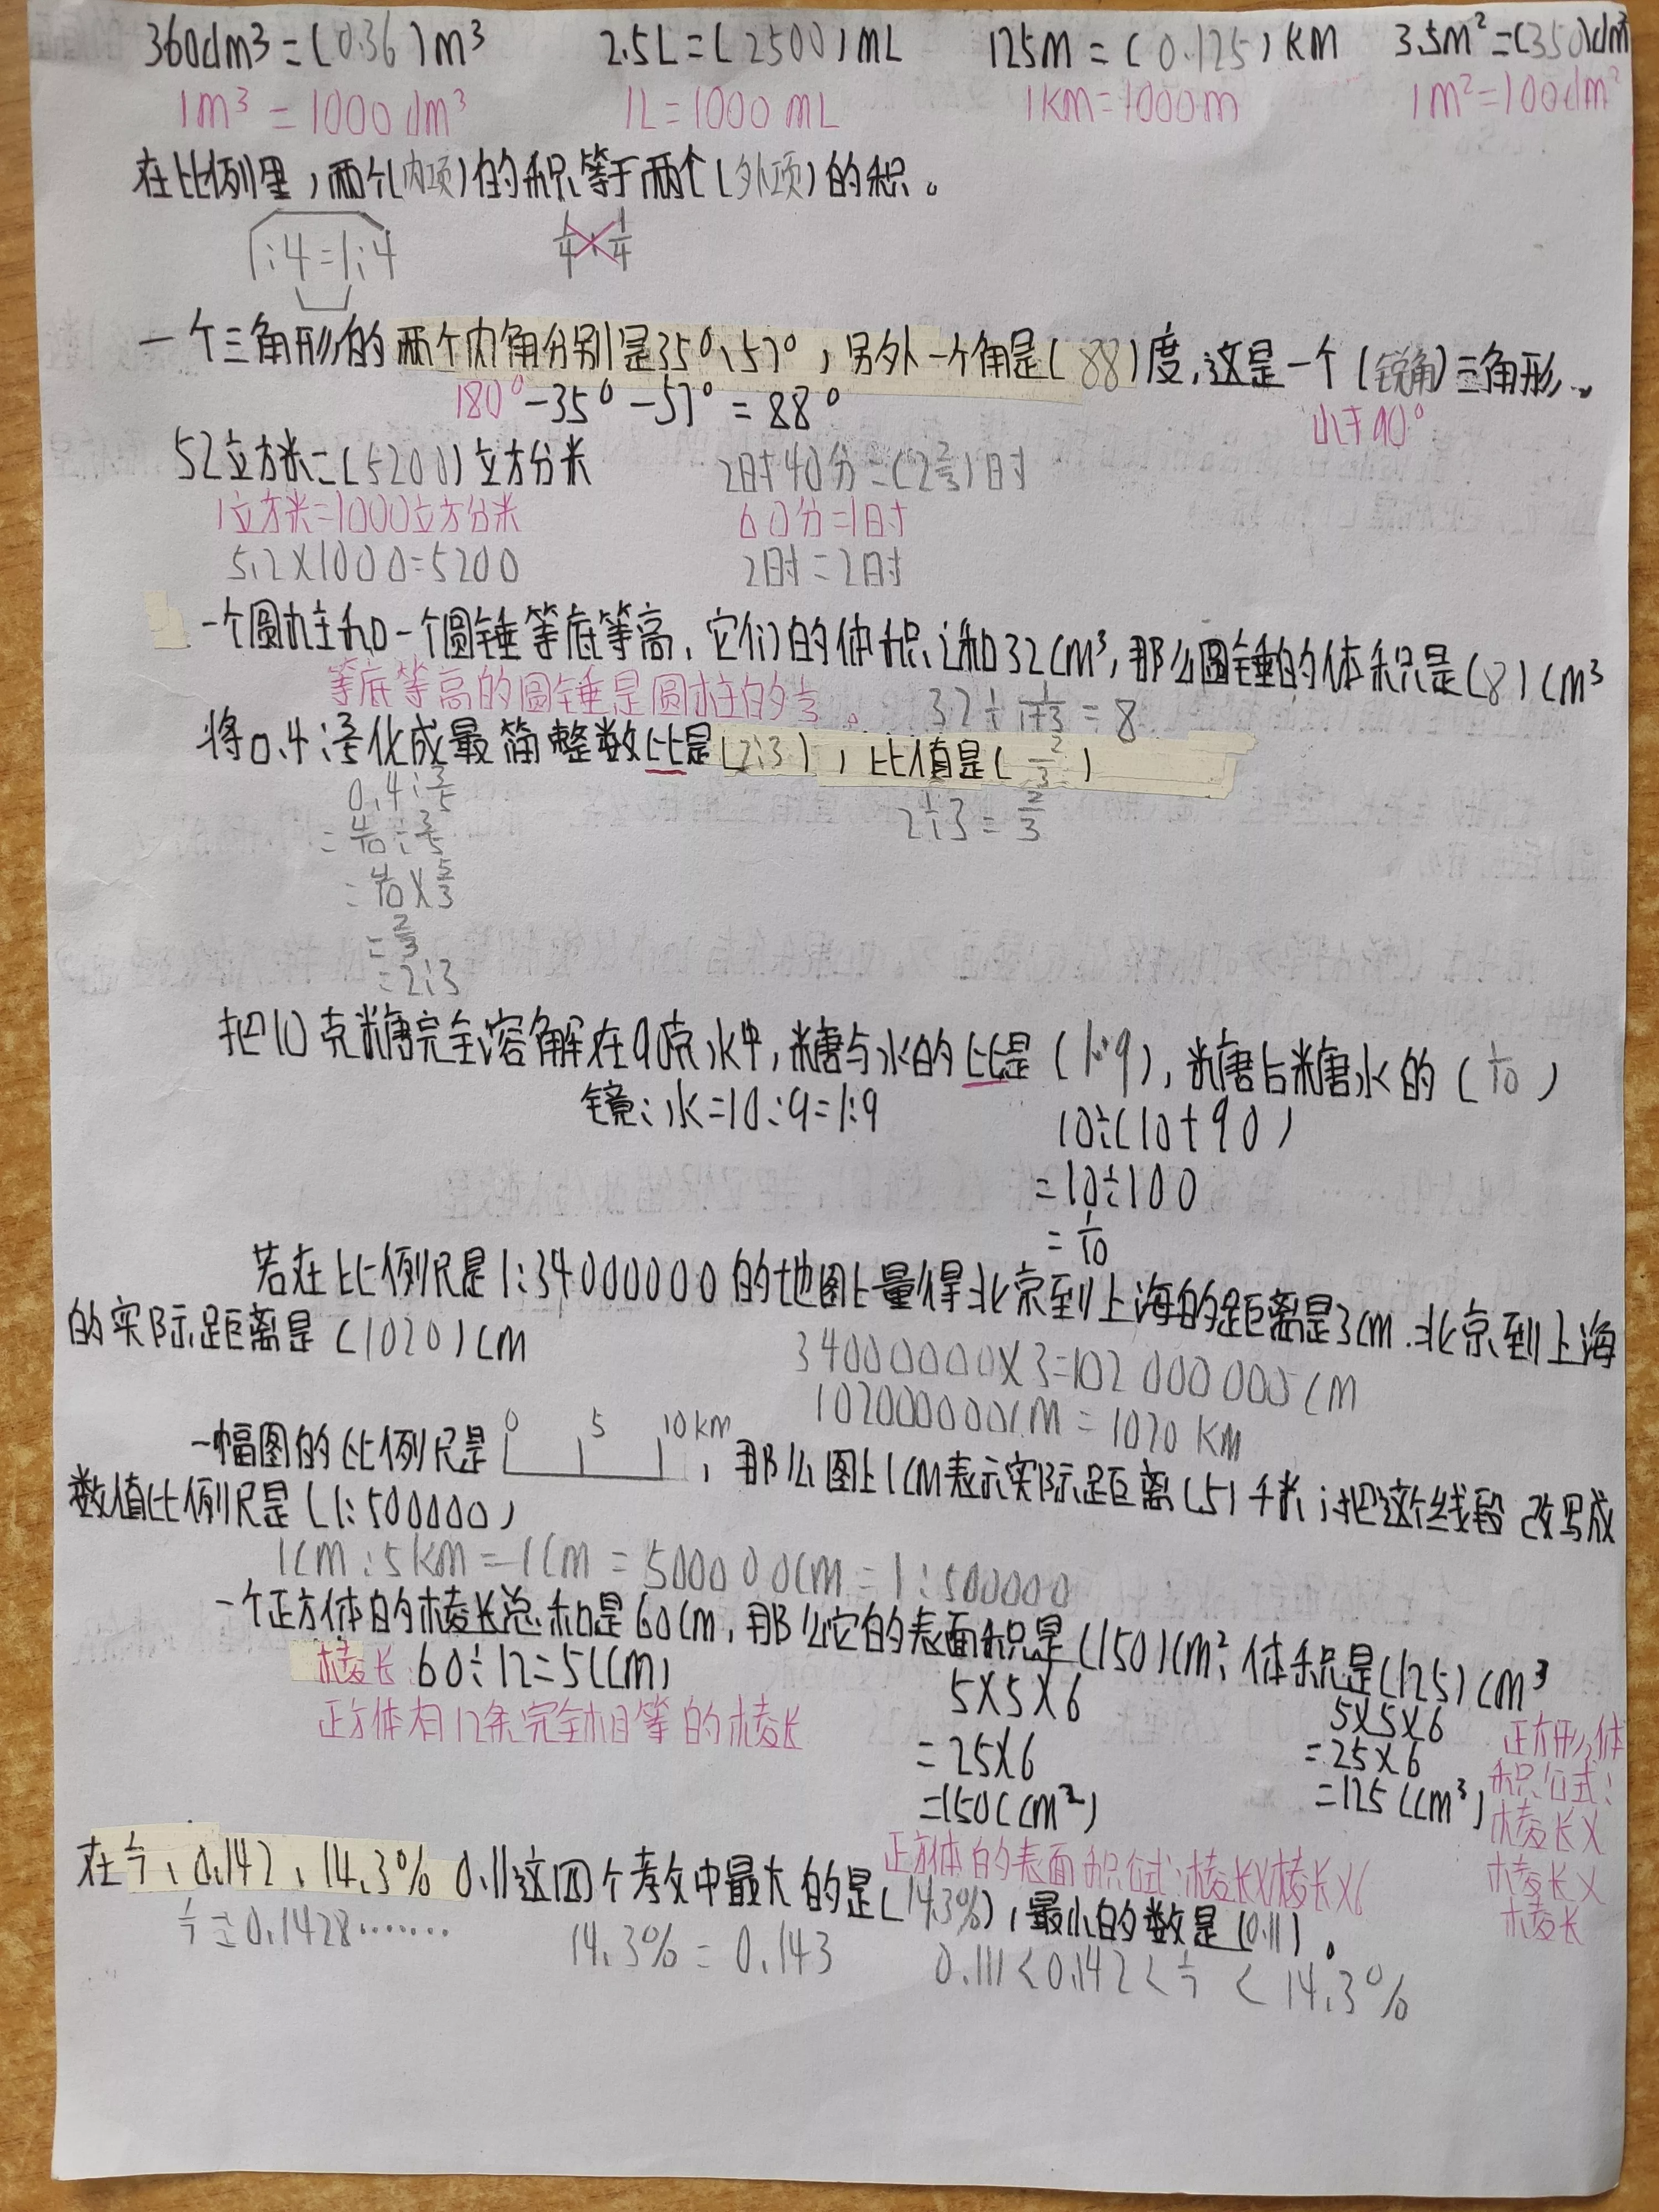 360dm³=(0.36)m³ 2.5L=(2500)mL 125m=(0.125)KM 3.5m²=(350)dm²
1m³=1000dm³ 1L=1000mL 1km=1000m 1m²=100dm²
在比例里,两个(内项)的积等于两个(外项)的积。
1:4=1:4 1/4 1/4
一个三角形的两个内角分别是35°、57°,另外一个角是(88)度,这是一个(锐角)三角形。
180°-35°-57°=88° 小于90°
52立方米=(5200)立方分米 2时40分=(2 2/3)时
1立方米=1000立方分米 60分=1时
5.2×1000=5200 2时=2时
一个圆柱和一个圆锤等底等高,它们的体积和32cm³,那么圆锤的体积是(8)cm³
等底等高的圆锤是圆柱的1/3。 32÷1/1+3=8
将0.4:3/5化成最简整数比是(2:3),比值是(2/3)
0.4:3/5 2÷3=2/3
=4/10÷3/5
=4/10×5/3
=2/3
=2:3
把10克糖完全溶解在90克水中,糖与水的比是(1:9),糖占糖水的(1/10)
:水=10:9=1:9 10÷(10+90)
=10÷100
=1/10
若在比例尺是1:34000000的地图上量得北京到上海的距离是3cm.北京到上海
的实际距离是(1020)cm 34000000×3=102000000cm
102000000cm=1020KM
一幅图的比例尺是 0 5 10km,那么图上1cm表示实际距离(5)千米;把这个线段改写成
数值比例尺是(1:500000)
1cm:5km=1cm=500000cm=1:500000
一个正方体的棱长总和是60cm,那么它的表面积是(150)cm²,体积是(125)cm³
棱长:60÷12=5(cm) 5×5×6 5×5×6 正方形体
正方体有12条完全相等的棱长 =25×6 =25×6 积公式:
=150(cm²) =125(cm³) 棱长×
正方体的表面积公式:棱长×棱长×6 棱长×
在1/7、0.142、14.3% 0.11这四个数中最大的是(14.3%),最小的数是(0.11)。 棱长
1/7=0.1428······· 14.3%=0.143 0.111<0.142<1/7<14.3%